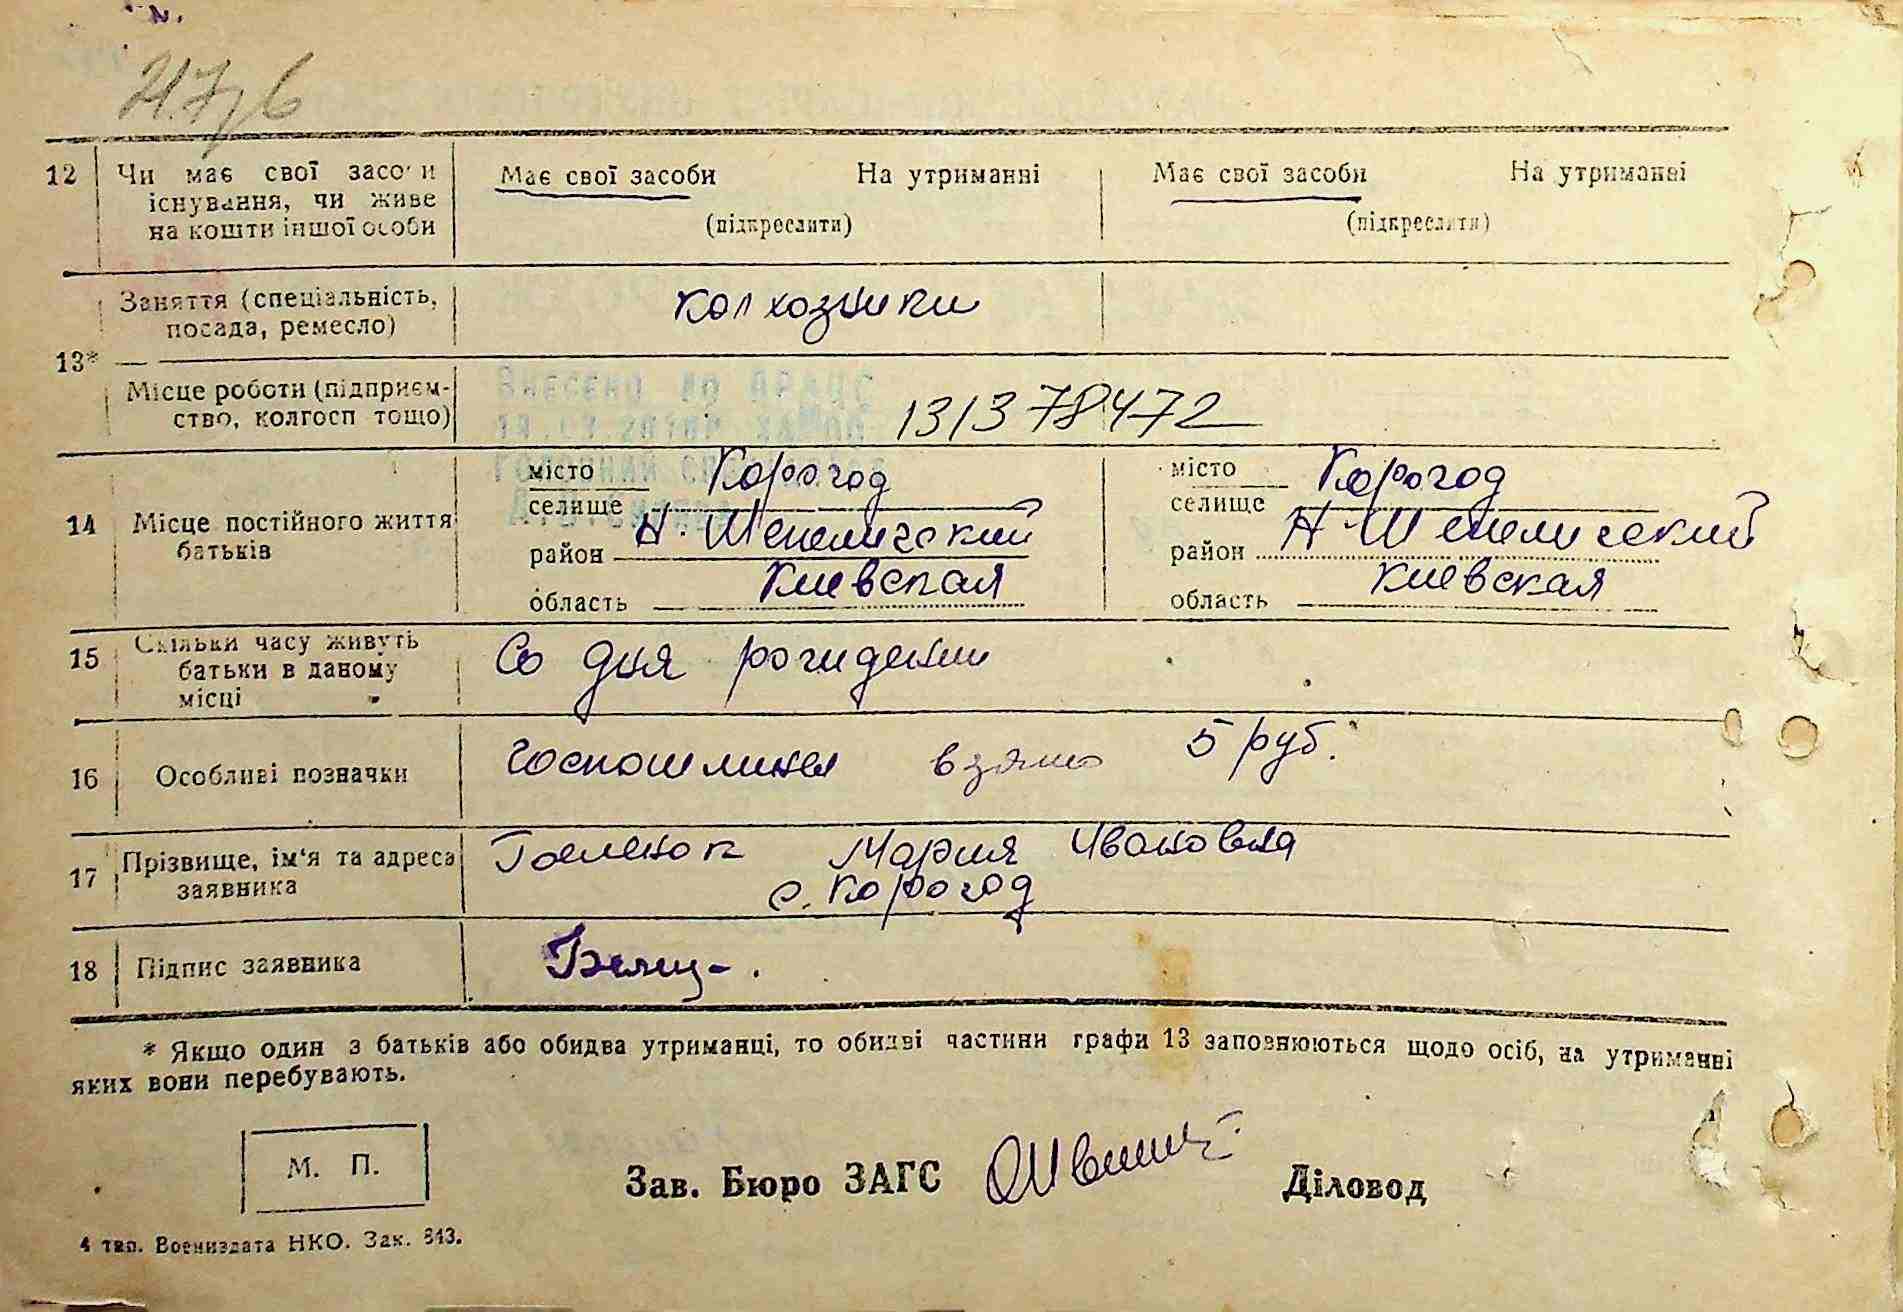 12 Чи має свої засоби Має свої засоби На утриманні Має свої засоби На утриманні
існування, чи живе
на кошти іншої особи (підкреслити) (підкреслити)
Заняття (спеціальність, колхозники
посада, ремесло)
13*
Місце роботи (підприєм- Внесено до ДРАЦС
ство, колгосп тощо) 131378472
місто Корогод місто Корогод
селище селище
14 Місце постійного життя Н. Шепеличский Н. Шепеличский
батьків район район
Киевская Киевская
область область
15 Скільки часу живуть Со дня рождении
батьки в даному
місці
16 Особливі позначки госпошлина взято 5 руб.
17 Прізвище, ім'я та адреса Мария Ивановна
заявника с. Корогод
18 Підпис заявника
* Якщо один з батьків або обидва утриманці, то обидві частини графи 13 заповнюються щодо осіб, на утриманні
яких вони перебувають.
М. П.
Зав. Бюро ЗАГС Діловод
4 тип. Воениздата НКО. Зак. 843.